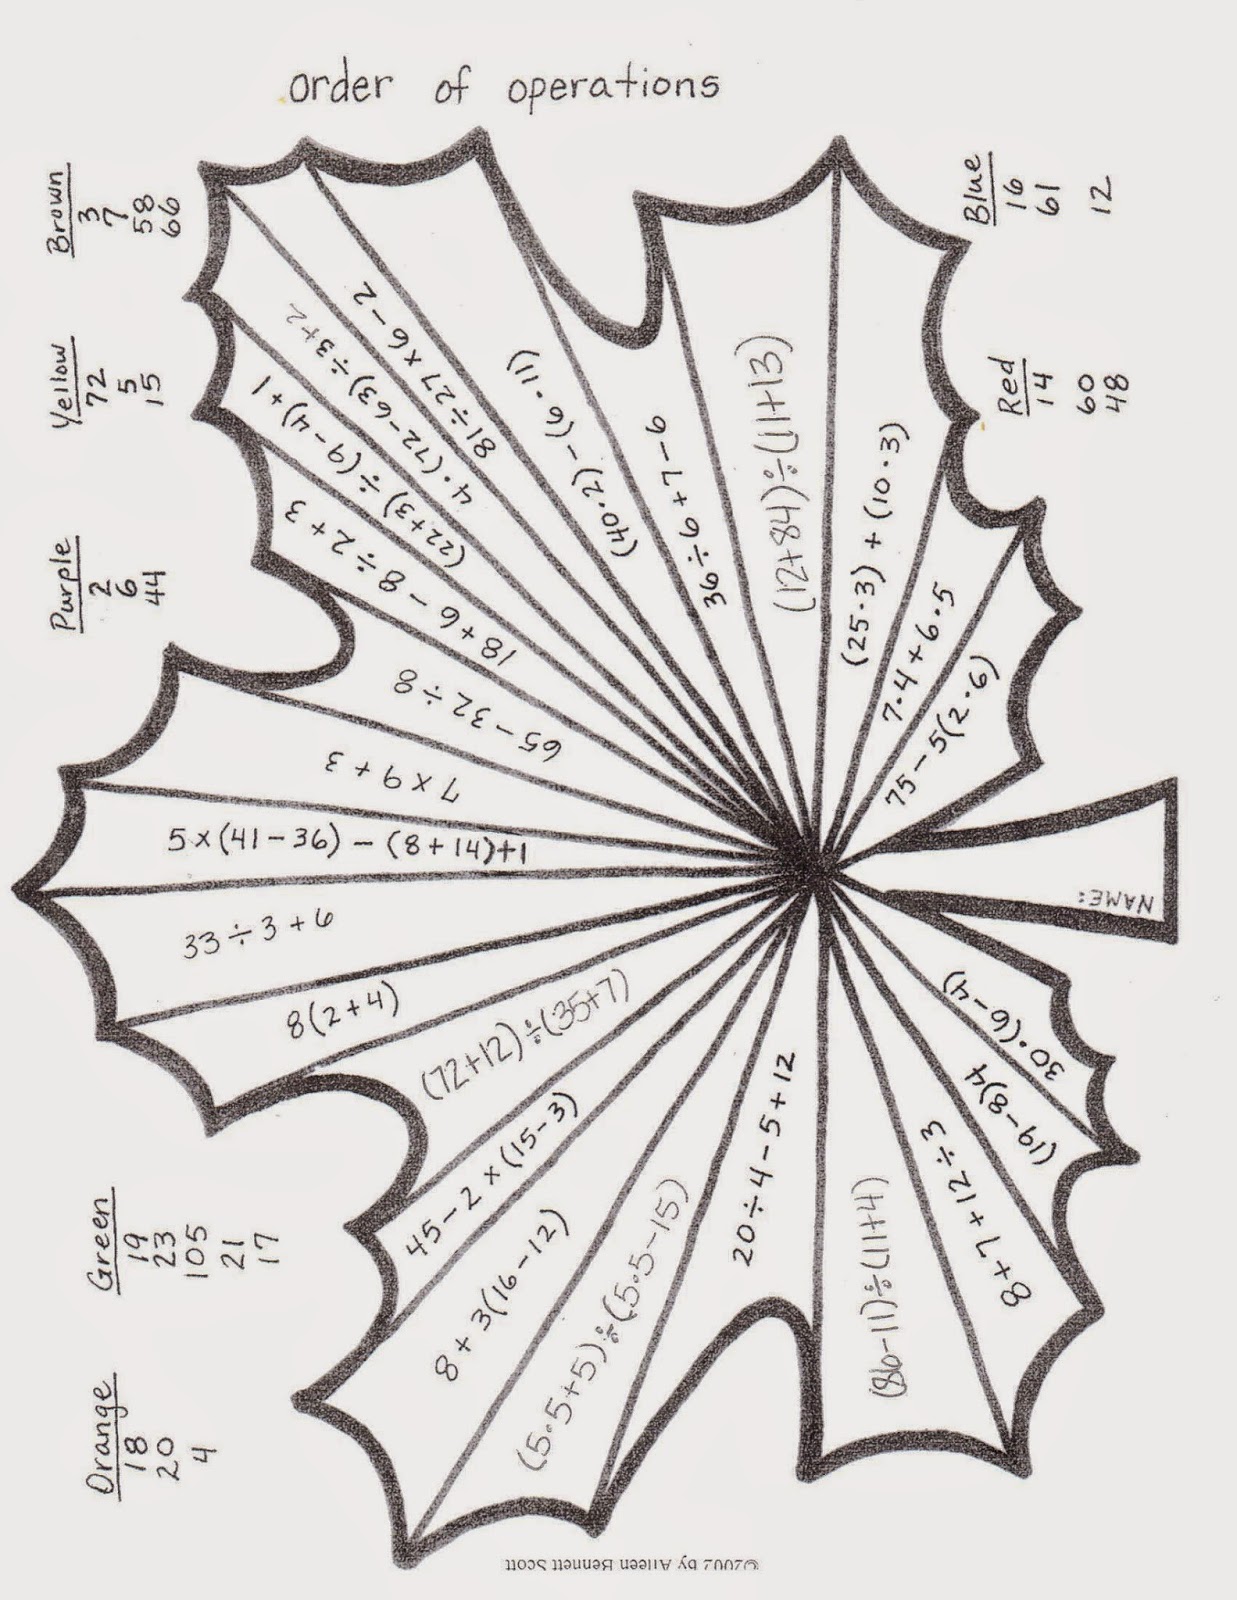 order of operations
Brown
3
7
58
66
Yellow
72
5
15
Purple
2
6
44
Blue
16
61
12
Red
14
60
48
Green
19
23
105
21
17
Orange
18
20
4
4·(72-63)÷3+2
81÷27×6-2
(22+3)÷(9-4)+1
18+6-8÷2+3
65-32÷8
7×9+3
5×(41-36)-(8+14)+1
33÷3+6
8(2+4)
(72+12)÷(35+7)
45-2×(15-3)
8+3(16-12)
(5·5+5)÷(5·5-15)
20÷4-5+12
(86-11)÷(11+4)
8+7+12÷3
(19-8)4
30·(6-4)
NAME:
75-5(2·6)
7·4+6·5
(25·3)+(10·3)
(12+84)÷(11+13)
36÷6+7-6
(40·2)-(6·11)
©2002 by Aileen Bennett Scott